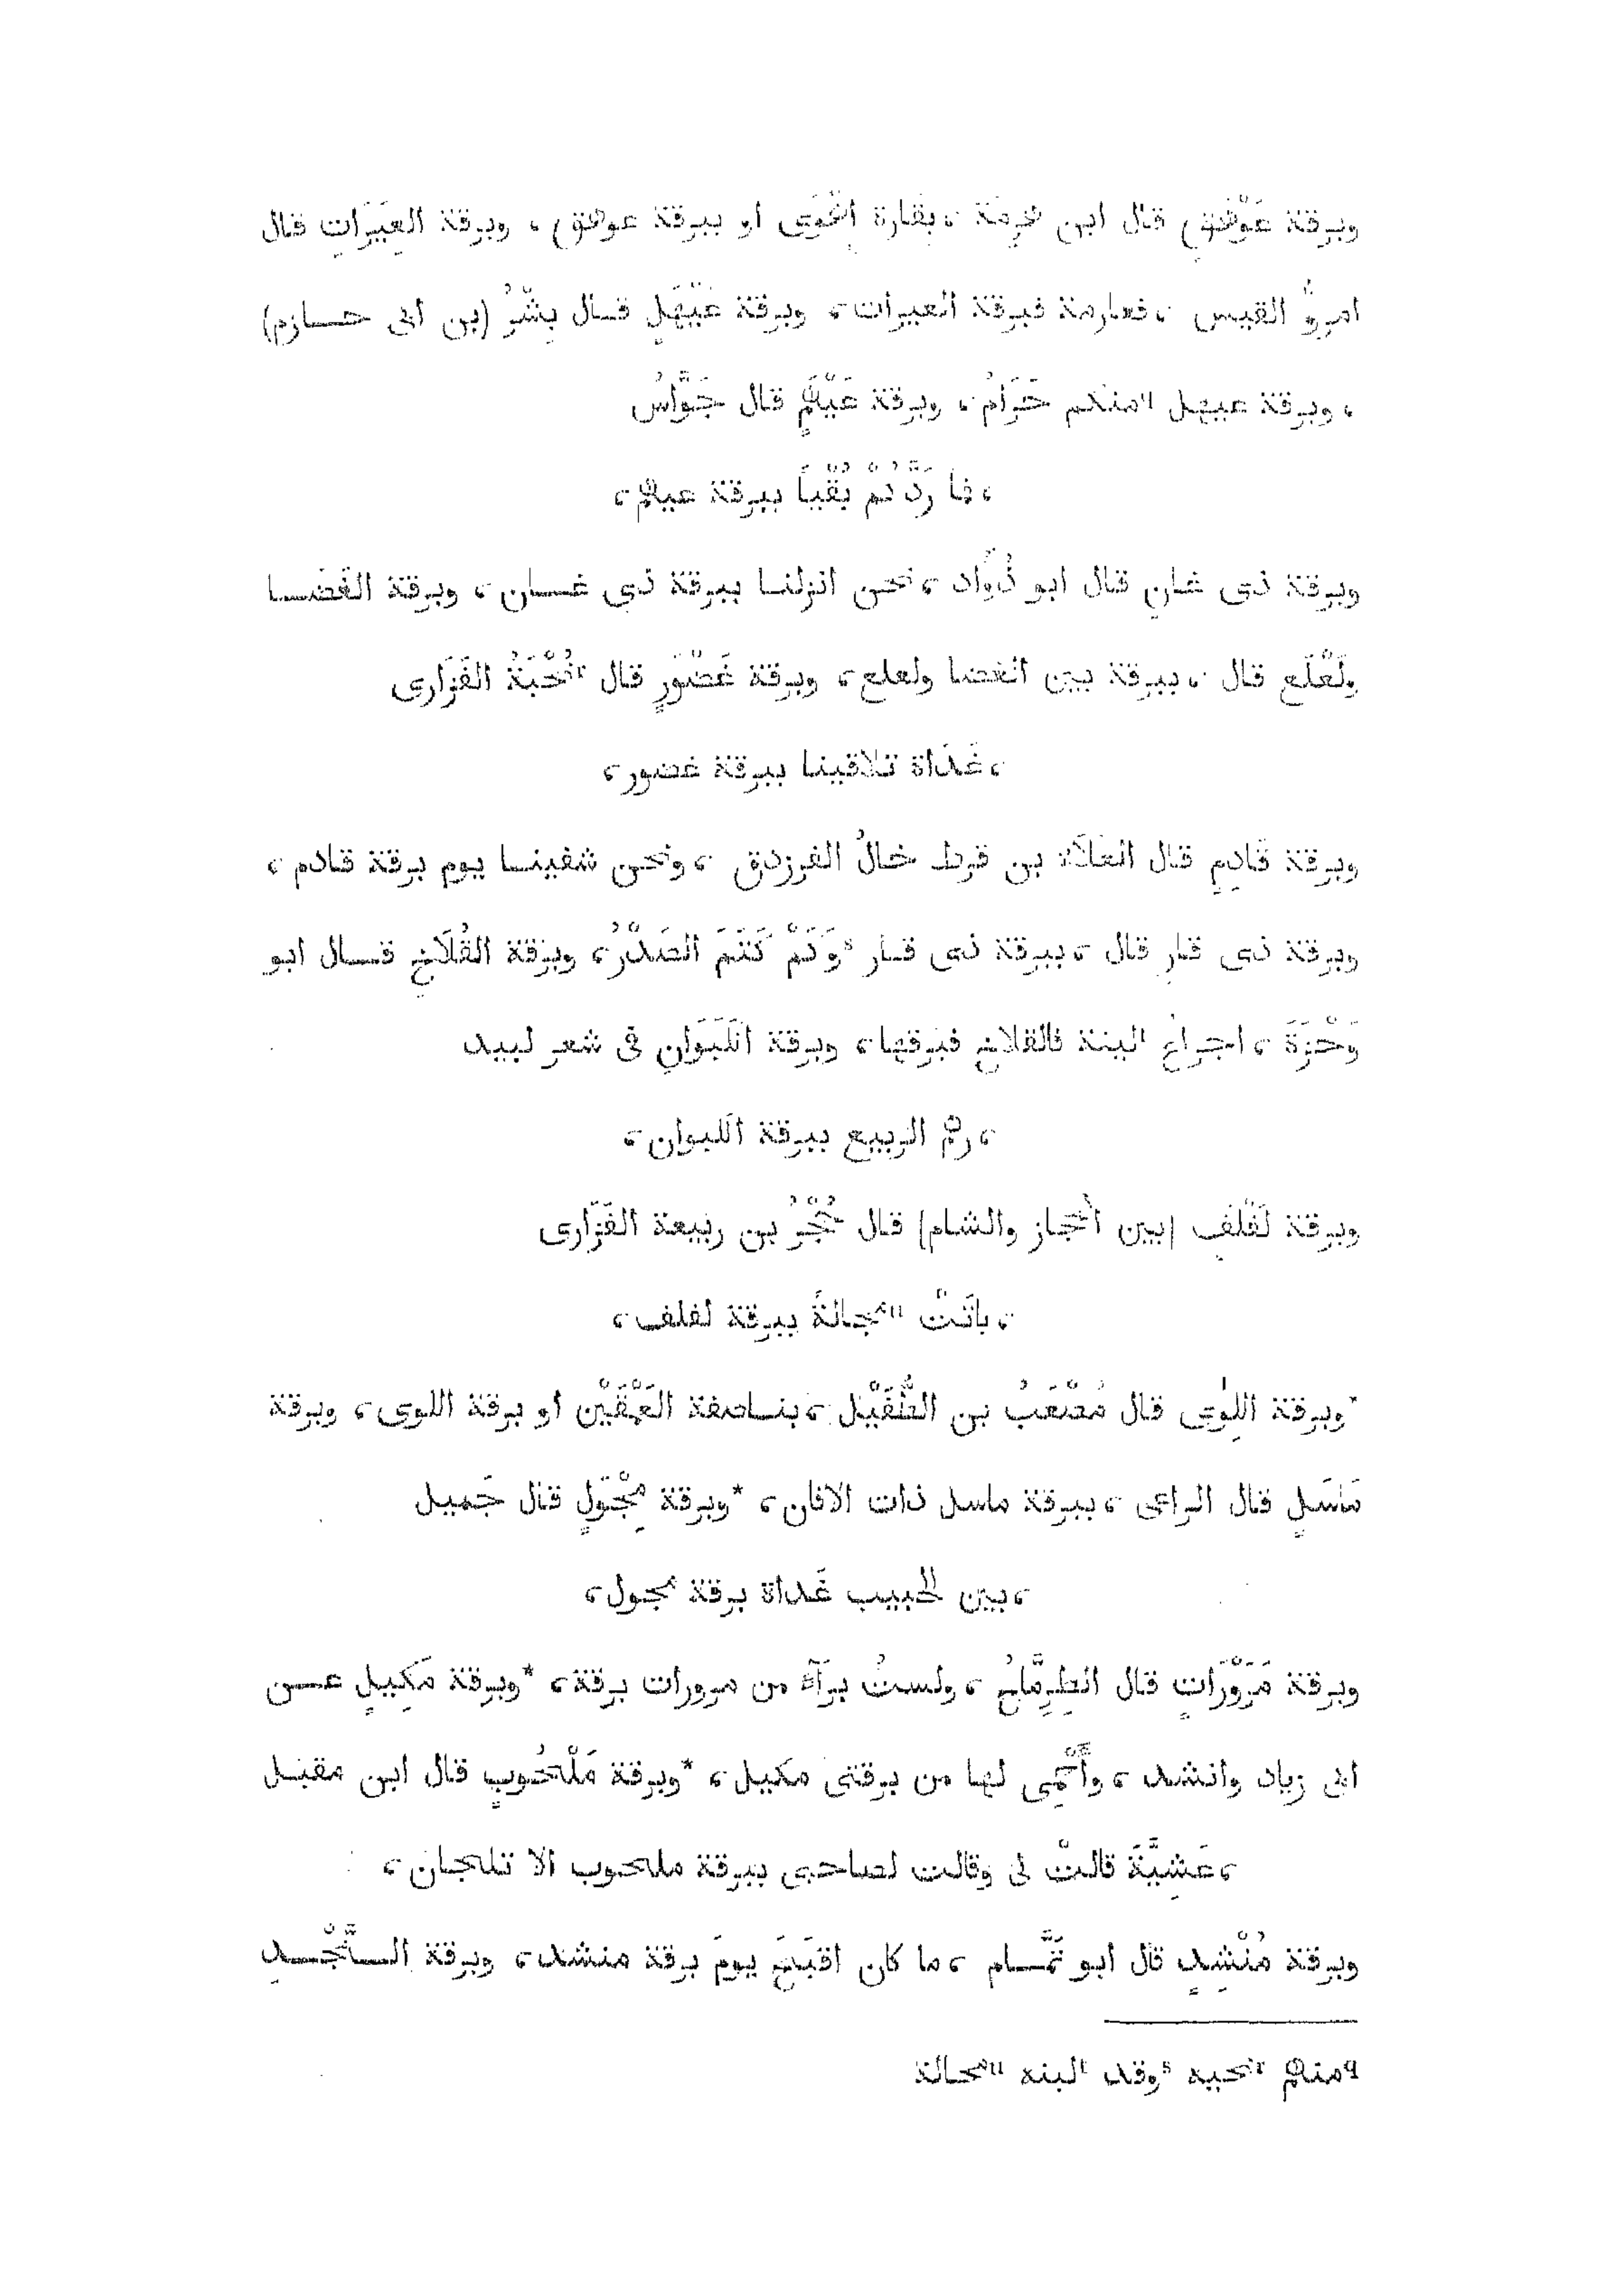 وبرقة عَوْهَقٍ قال ابن هَرْمَة ، بقارة أَهْوَى او ببرقة عوهق ، وبرقة العِيَرَاتِ قال
امروُ القيس ، فعارمة فبرقة العيرات ، وبرقة عَيْهَلٍ قال بِشْرُ (بن ابى حازم)
، وبرقة عيهل q منكم حَرَامُ ، وبرقة عَيْهَمٍ قال جَوَّاسُ
، فما رَدَّكُمْ بُقْيَا ببرقة عيهم ،
وبرقة ذى غان قال ابو دُوَاد ، نحن انزلنا ببرقة ذى غسان ، وبرقة الغَضَا
ولَعْلَع قال ، ببرقة بين الغضا ولعلع ، وبرقة غَضْوَرٍ قال r نُخْبَةُ الفَزَارى
، غَدَاة تلاقينا ببرقة غضور ،
وبرقة قَادِمٍ قال العَلَاء بن قرط خالُ الفرزدق ، ونحن شفينا يوم برقة قادم ،
وبرقة ذى قارٍ قال ، ببرقة ذى قار s وَكَمْ كَتَمَ الصَدْرُ ، وبرقة القُلَاخِ قال ابو
وَجْزَةَ ، اجراعُ t لينة فالقلاخ فبرقها ، وبرقة الكَبَوَانِ فى شعر لبيد
، رهم الربيع ببرقة الكبوان ،
وبرقة لَفْلَفٍ (بين الحجاز والشام) قال حُجْرُ بن ربيعة الفَزَارى
، باتَتْ u مجالةً ببرقة لفلف ،
*وبرقة اللِوَى قال مُصْعَبُ بن الطُّفَيْل ، بناصفة العَمْقَيْن او برقة اللوى ، وبرقة
مَاسَلٍ قال الراعى ، ببرقة ماسل ذات الافان ، *وبرقة مِجْوَلٍ قال جَميل
، بين الحبيب غَداة برقة مجول ،
وبرقة مَرَوْرَاتٍ قال الطِرِمَّاحُ ، ولستُ برَآءٍ من مرورات برقة ، *وبرقة مَكِيلٍ عن
ابى زياد وانشد ، وأَحْمِى لها من برقتى مكيل ، *وبرقة مَلْحُوبٍ قال ابن مقبل
، عَشِيَّةَ قالتْ لى وقالت لصاحبى ببرقة ملحوب الا تلجان ،
وبرقة مُنْشِدٍ قال ابو تَمَّام ، ما كان اقبَحَ يومَ برقة منشد ، وبرقة النَّجْدِ
q منهم r نحبه s وقد t لبنه u محالة